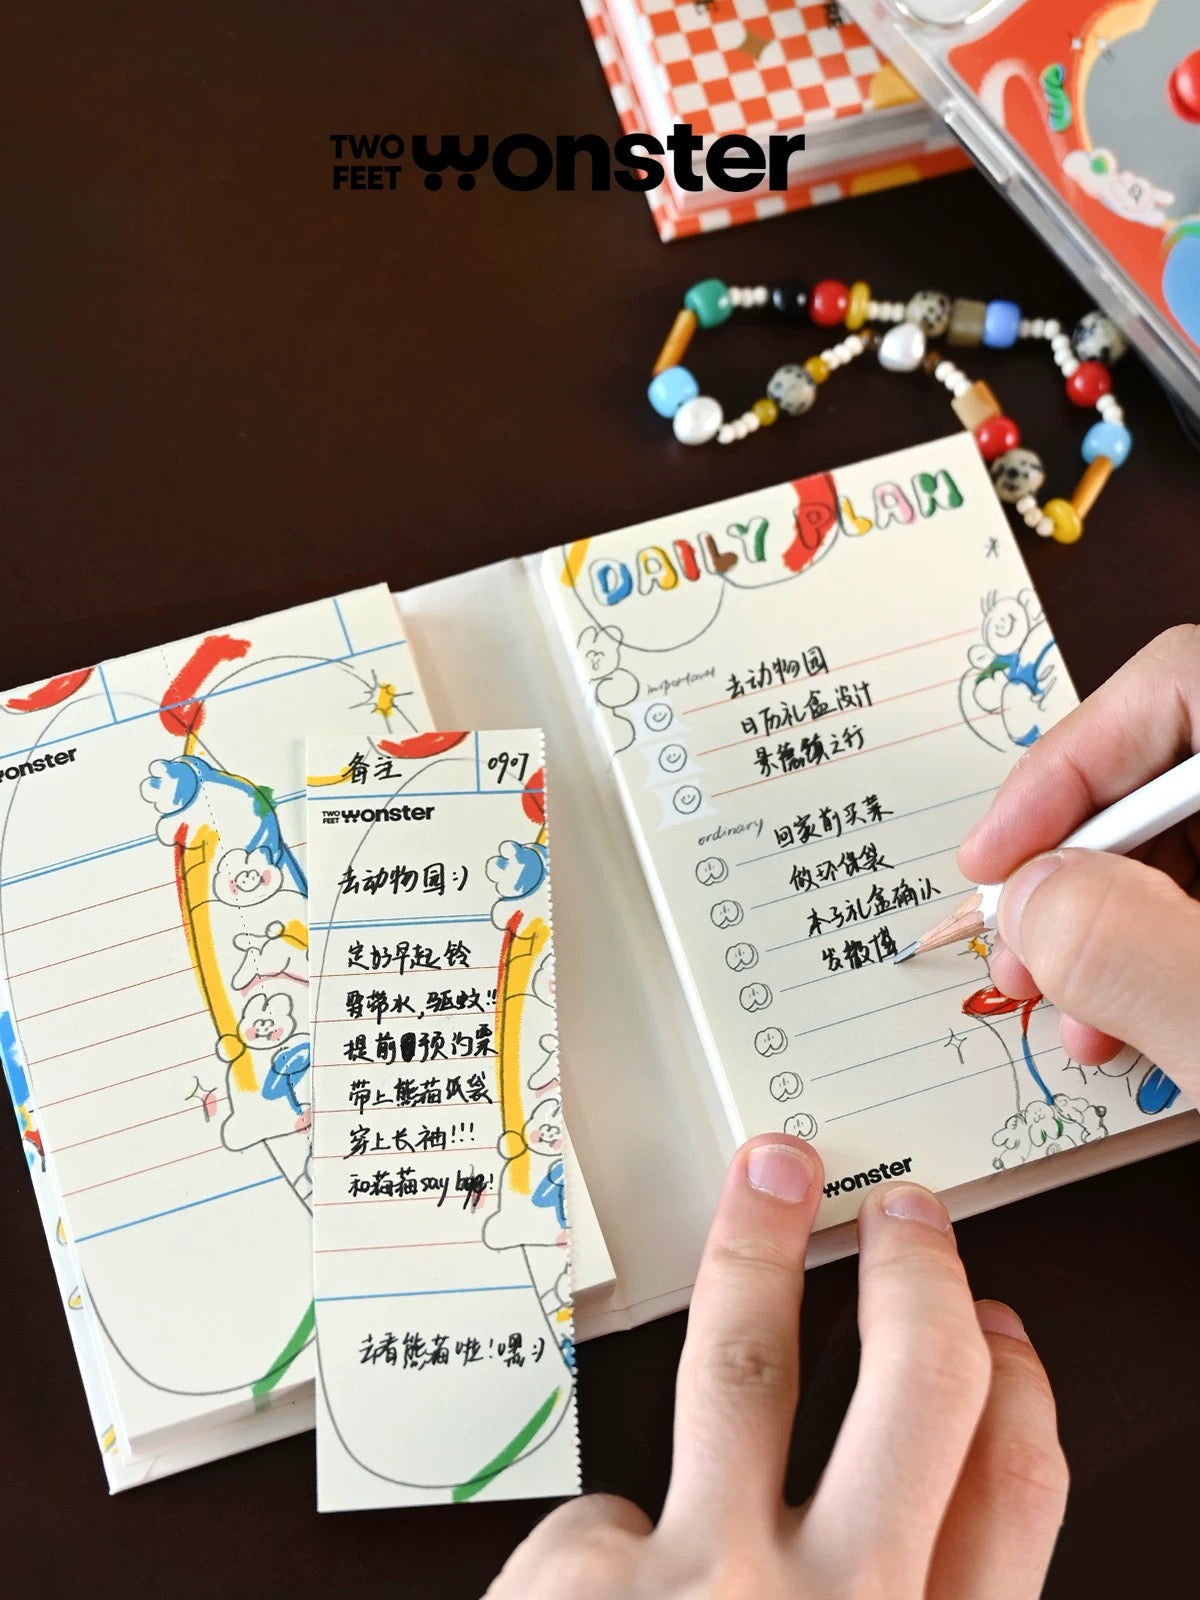 TWO
FEET wonster
wonster
备注 0907
TWO
FEET wonster
去动物园:)
定好早起铃
要带水,驱蚊!!
提前预约票
带上熊猫纸袋
穿上长袖!!!
和猫猫say bye!
去看熊猫啦!嘿:)
DAILY PLAN
important
去动物园
日历礼盒设计
景德镇之行
ordinary
回家前买菜
做环保袋
本子礼盒确认
发微博
wonster